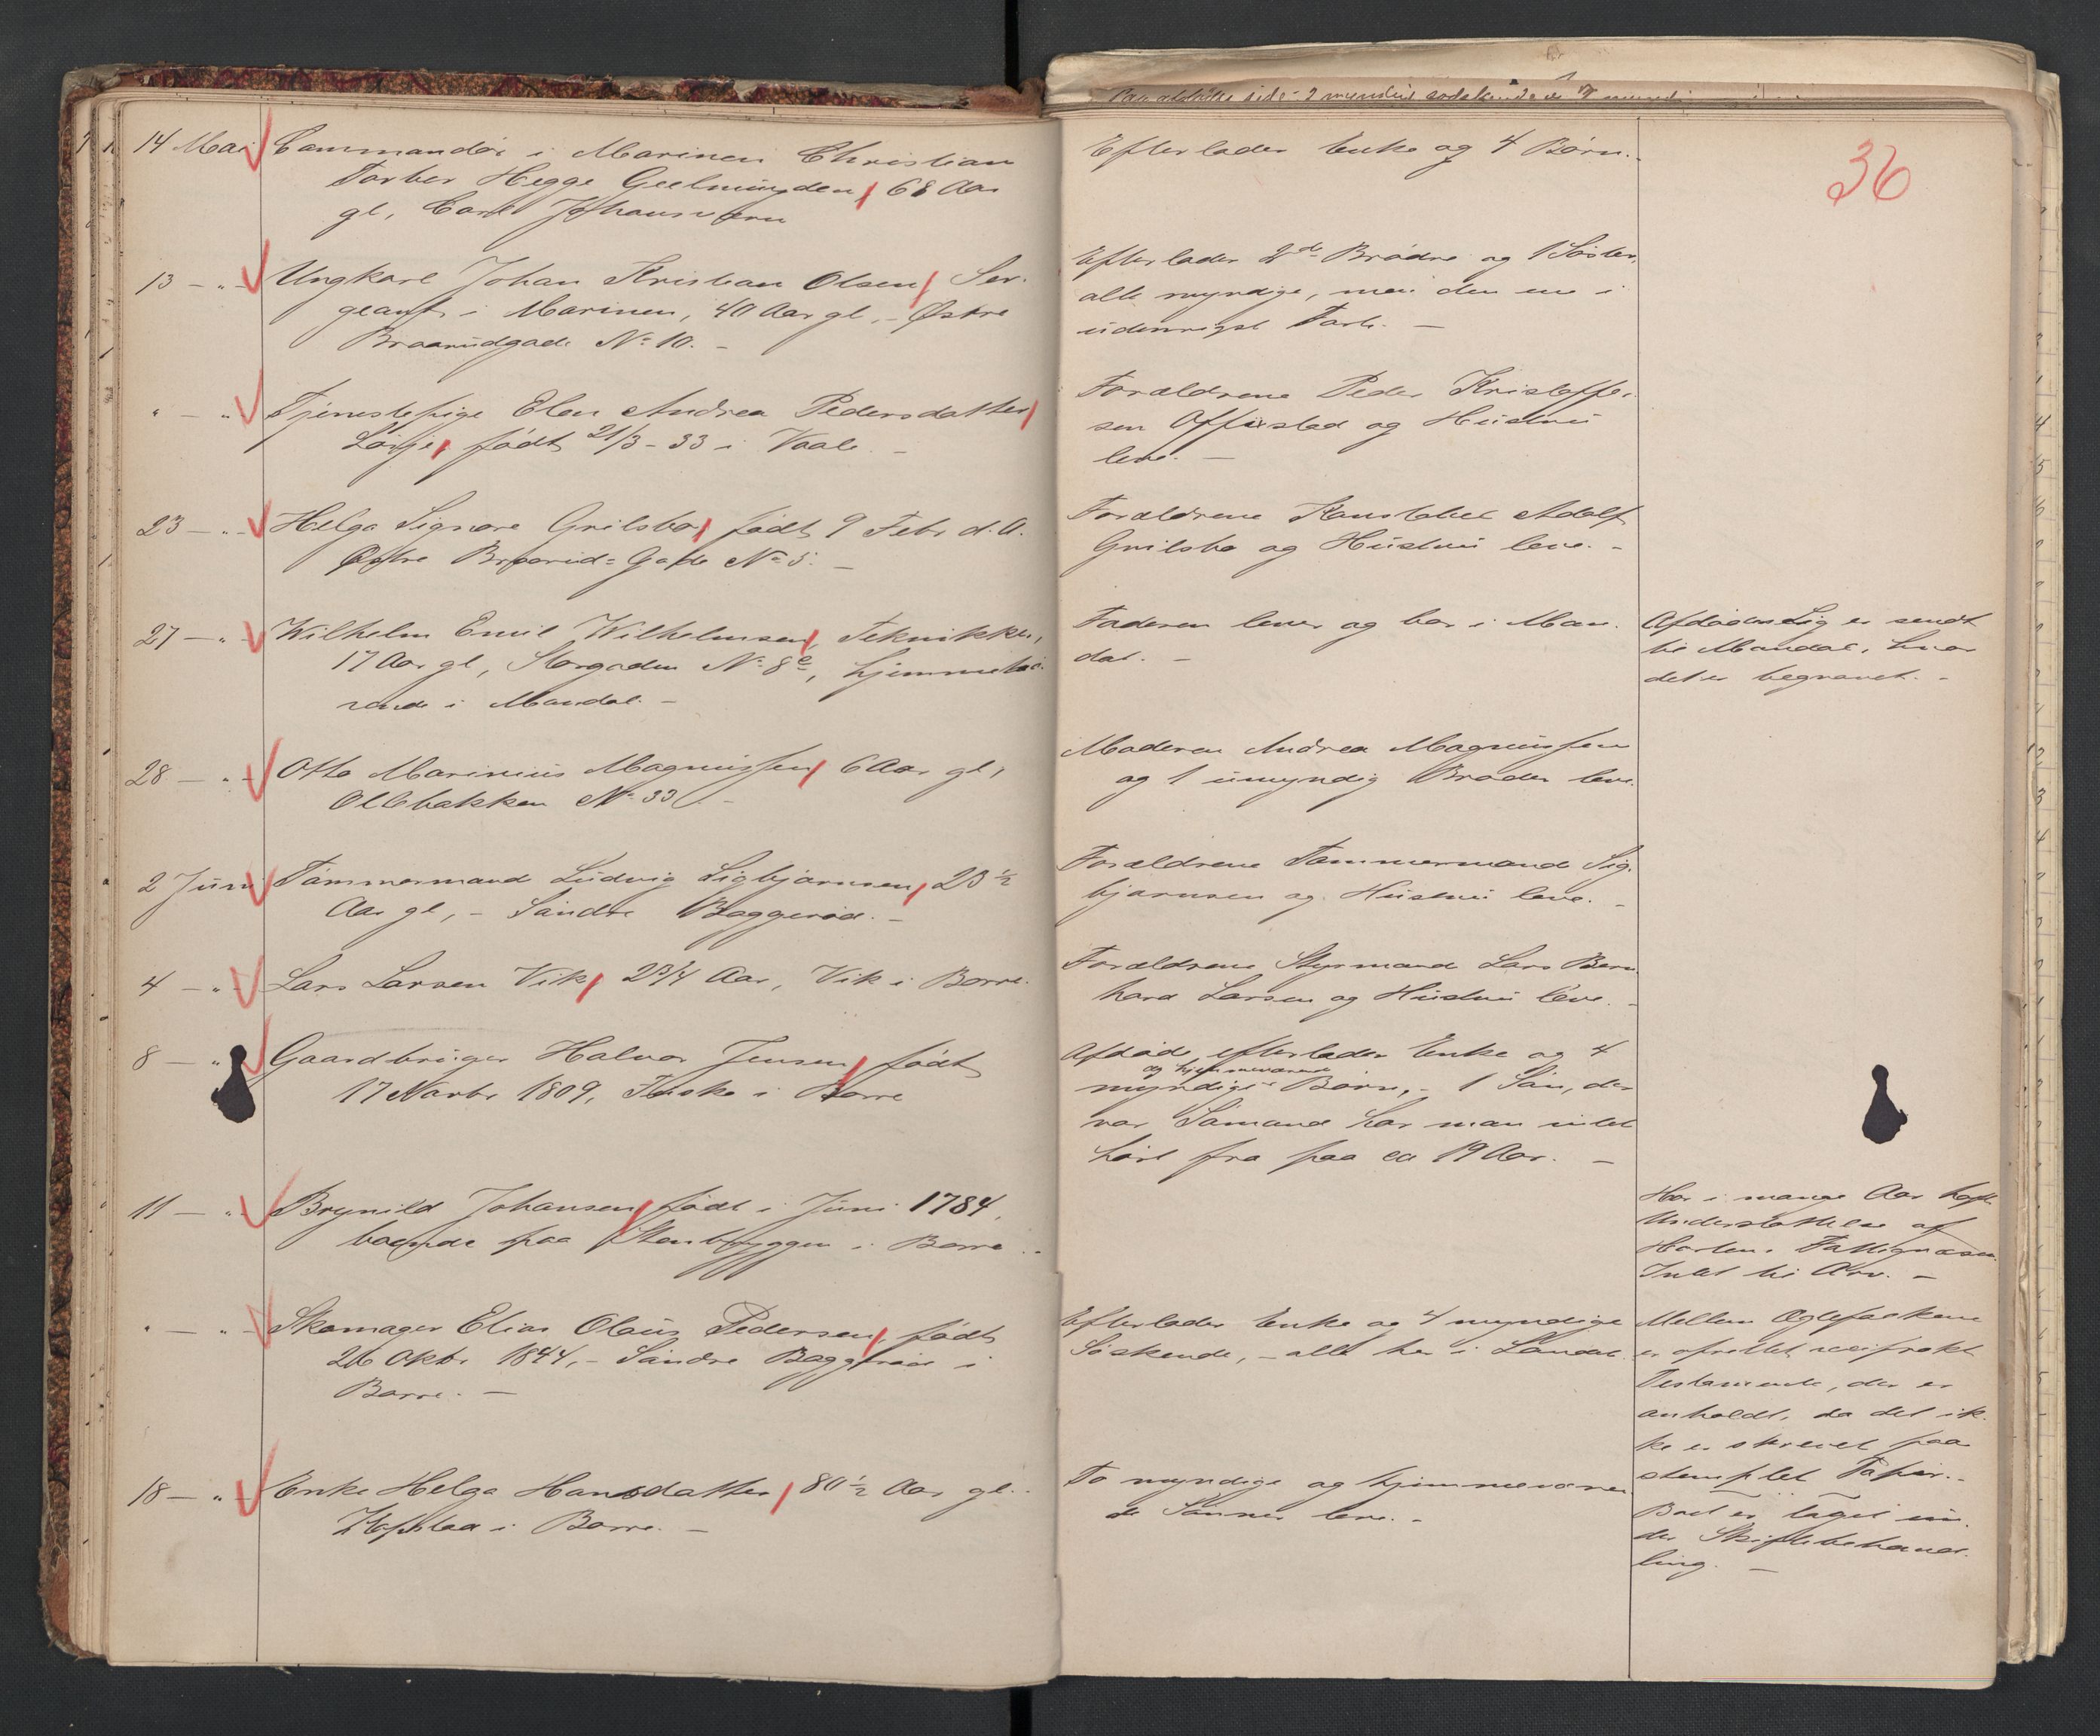 36
14 Mai Commandör i Marinen Christian
Torber Hegge Geelmuyden, 68 Aar
gl, Carl Johansværn
Efterlader Enke og 4 Børn.
13 — " — Ungkarl Johan Kristian Olsen, Ser-
geant i Marinen, 40 Aar gl. - Østre
Braarudgade No 10. -
Efterlader 2de Brødre og 1 Søster,
alle myndige, men den ene i
udenrigst Fart. —
" — " — Tjenestepige Elen Andrea Pedersdatter
født 21/3 - 33 i Vaale. -
Forældrene Peder Kristoffer-
sen og Hustru
leve. —
23 — " — Helga Signore Grilsbo, født 9 Febr d. A.
Østre Braarud-Gade No 5. —
Forældrene Konstabel Adolf
Grilsbo og Hustru leve. -
27 — " — Wilhelm Emil Wilhelmsen, Teknikker,
17 Aar gl, Storgaden No 8e, hjemmehø-
rende i Mandal. -
Faderen lever og bor i Man-
dal. -
Afdødes Lig er sendt
til Mandal, hvor
det er begravet. -
28 — " — Otto Marinius Magnussen, 6 Aar gl,
Ollebakken No 33. -
Moderen Andrea Magnussen
og 1 umyndig Broder leve.
2 Juni Tømmermand Ludvig Sigbjørnsen, 23 1/2
Aar gl, - Søndre Baggerød. -
Forældrene Tømmermand Sig-
bjørnsen og Hustru leve. -
4 — " — Lars Larsen Vik, 2 3/4 Aar, Vik i Borre.
Forældrene Styrmand Lars Bern-
hard Larsen og Hustru leve. -
8 — " — Gaardbruger Halvor Jensen, født
17 Novbr 1809, i Borre
Afdøde efterlader Enke og 4
og hjemmeværende
myndige Børn, - 1 Søn, der
var Sømand har man intet
hørt fra paa ca 19 Aar. —
11 — " — Brynild Johansen, født i Juni 1784,
boende paa Stenbryggen i Borre. -
Har i mange Aar havt
Understøttelse af
Hortens Fattigvæsen.
Intet til Arv. -
" — " — Skomager Elias Olaus Pedersen, født
26 Oktbr 1844, - Søndre Baggerød i
Borre. —
Efterlader Enke og 4 myndige
Søskende, - alle her i Landet.
Mellem Ægtefolkene
er oprettet reciprokt
Testamente, der er
anholdt, da det ik-
ke er skrevet paa
stemplet Papir. -
Boet er taget un-
der Skiftebehand-
ling. —
18 — " — Enke Helga Hansdatter, 80 1/2 Aar gl. -
i Borre. —
To myndige og hjemmeværen-
de Sønner leve. -